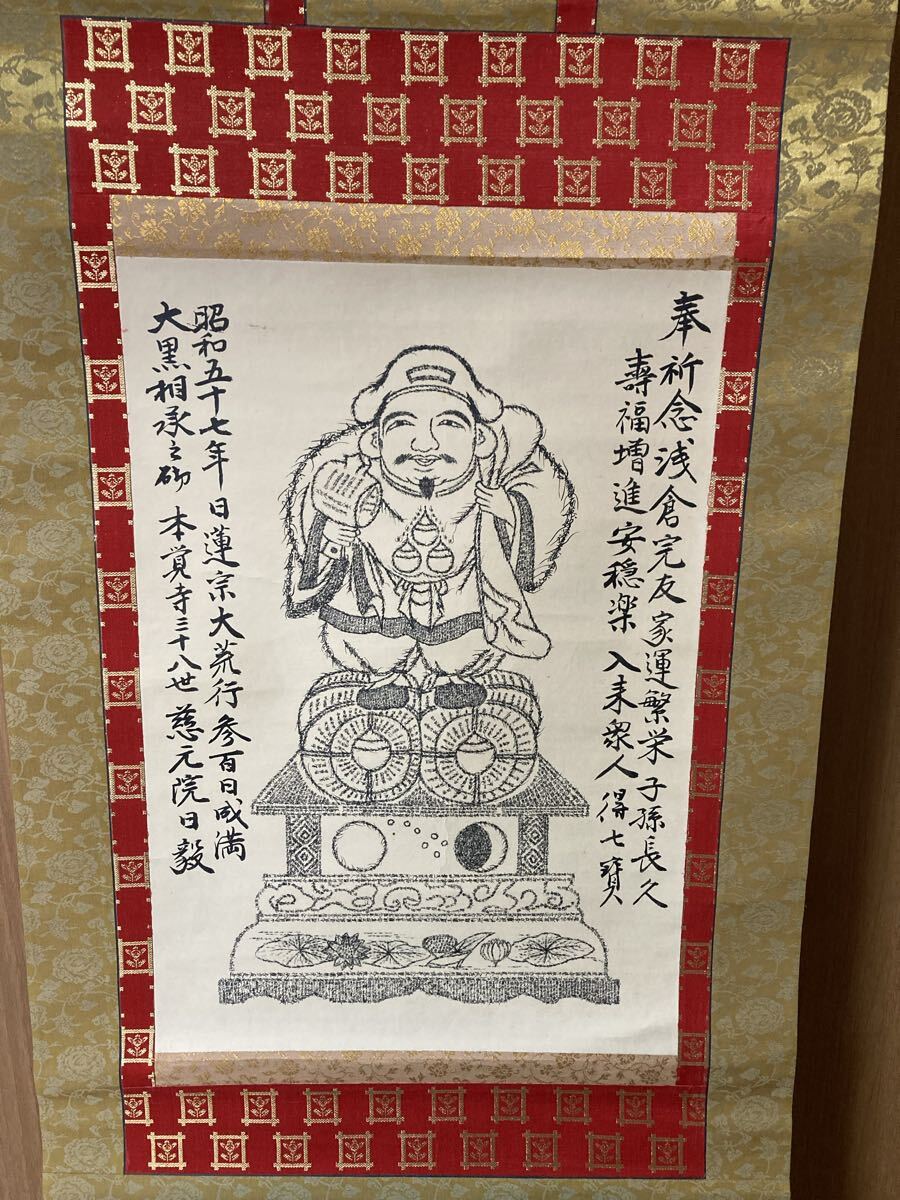 奉祈念浅倉完友家運繁栄子孫長久
壽福増進安穏楽入来衆人得七寶
昭和五十七年日蓮宗大荒行参百日成満
大黒相承之砌本覚寺三十八世慈元院日毅